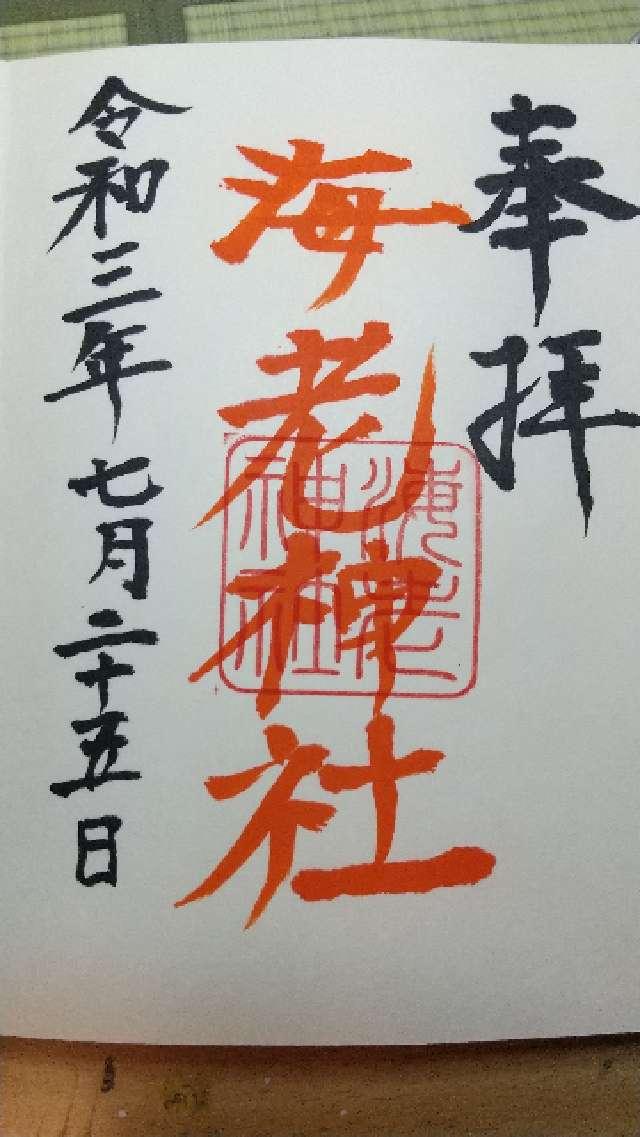 奉拝
海老神社
海老
神社
令和三年七月二十五日